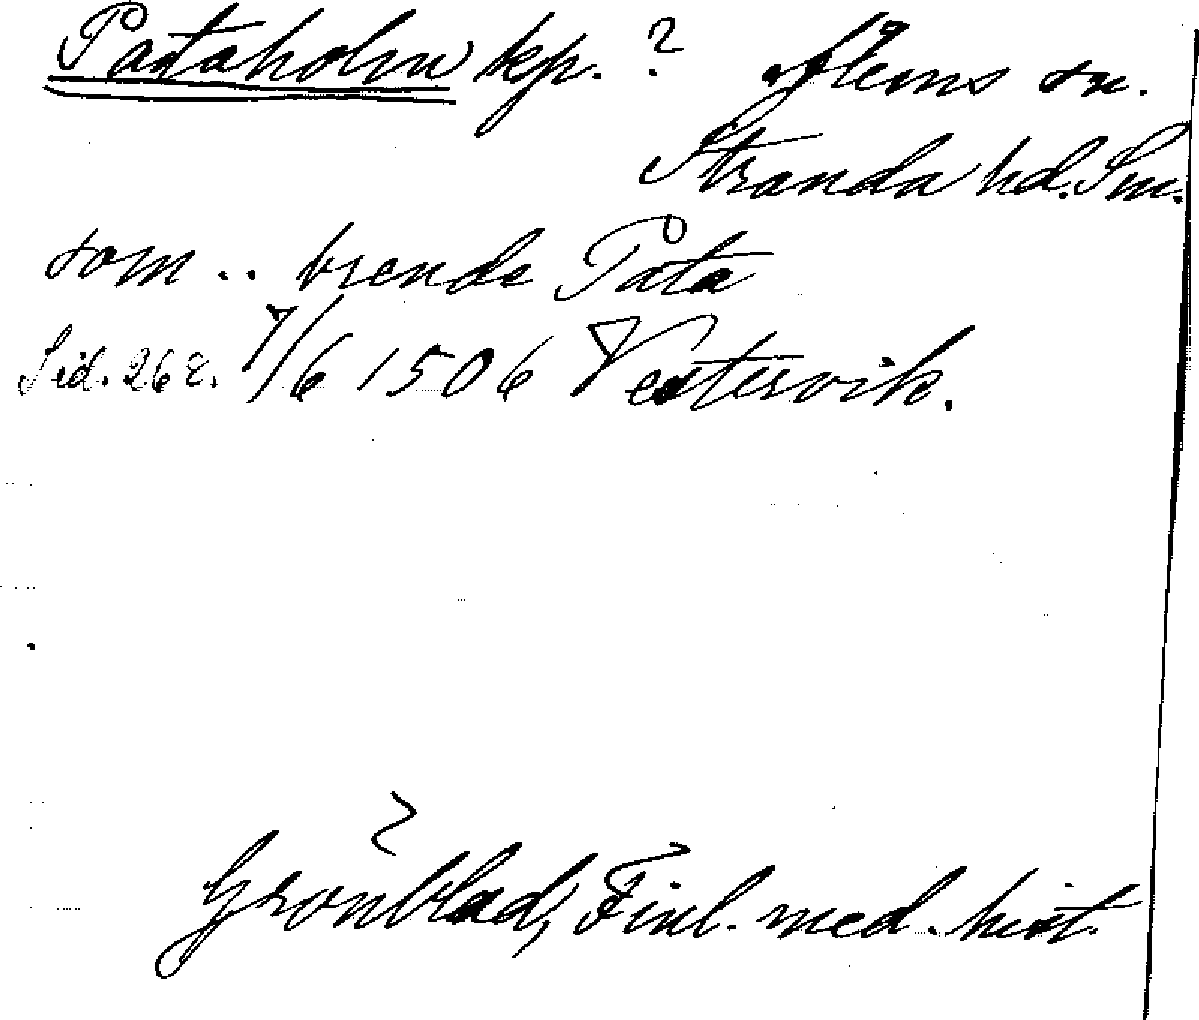 Pataholm kp. ? Ålems sn.
Stranda hd. Sm.
som .. brende Pata
Sid. 268. 7/6 1506 Vestervik.
Grönblad, Finl. med. hist.